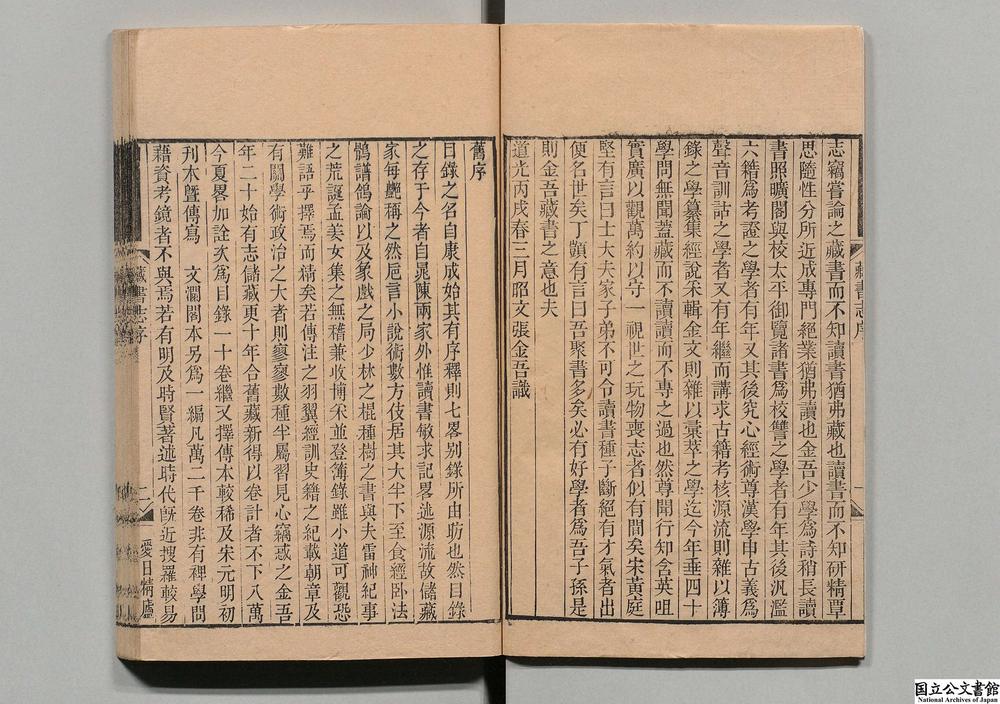 志竊嘗論之藏書而不知讀書猶弗藏也讀書而不知研精覃
思隨性分所近成專門絕業猶弗讀也金吾少學爲詩稍長讀
書照曠閣與校太平御覽諸書爲校讐之學者有年其後汎濫
六籍爲考證之學者有年又其後究心經術尊漢學申古義爲
聲音訓詁之學者又有年繼而講求古籍考核源流則雜以簿
錄之學纂集經說采輯金文則雜以彚萃之學迄今年垂四十
學問無聞蓋藏而不讀讀而不專之過也然尊聞行知含英咀
實廣以觀萬約以守一視世之玩物喪志者似有間矣宋黃庭
堅有言曰士大夫家子弟不可令讀書種子斷絕有才氣者出
便名世矣丁顗有言曰吾聚書多矣必有好學者爲吾子孫是
則金吾藏書之意也夫
道光丙戌春三月昭文張金吾識
藏書志序
一
舊序
目錄之名自康成始其有序釋則七畧别錄所由昉也然目錄
之存于今者自晁陳兩家外惟讀書敏求記畧述源流故儲藏
家每豔稱之然巵言小說術數方伎居其大半下至食經卧法
鶻譜鴿論以及象戲之局少林之棍種樹之書與夫雷神紀事
之荒誕孟姜女集之無稽兼收博采並登簿錄雖小道可觀恐
難語乎擇焉而精矣若傳注之羽翼經訓史籍之紀載朝章及
有關學術政治之大者則寥寥數種半屬習見心竊惑之金吾
年二十始有志儲藏更十年合舊藏新得以卷計者不下八萬
今夏畧加詮次爲目錄一十卷繼又擇傳本較稀及宋元明初
刋本曁傳寫　文瀾閣本另爲一編凡萬二千卷非有裨學問
藉資考鏡者不與焉若有明及時賢著述時代旣近搜羅較易
藏書志序
二
愛日精廬
国立公文書館
National Archives of Japan